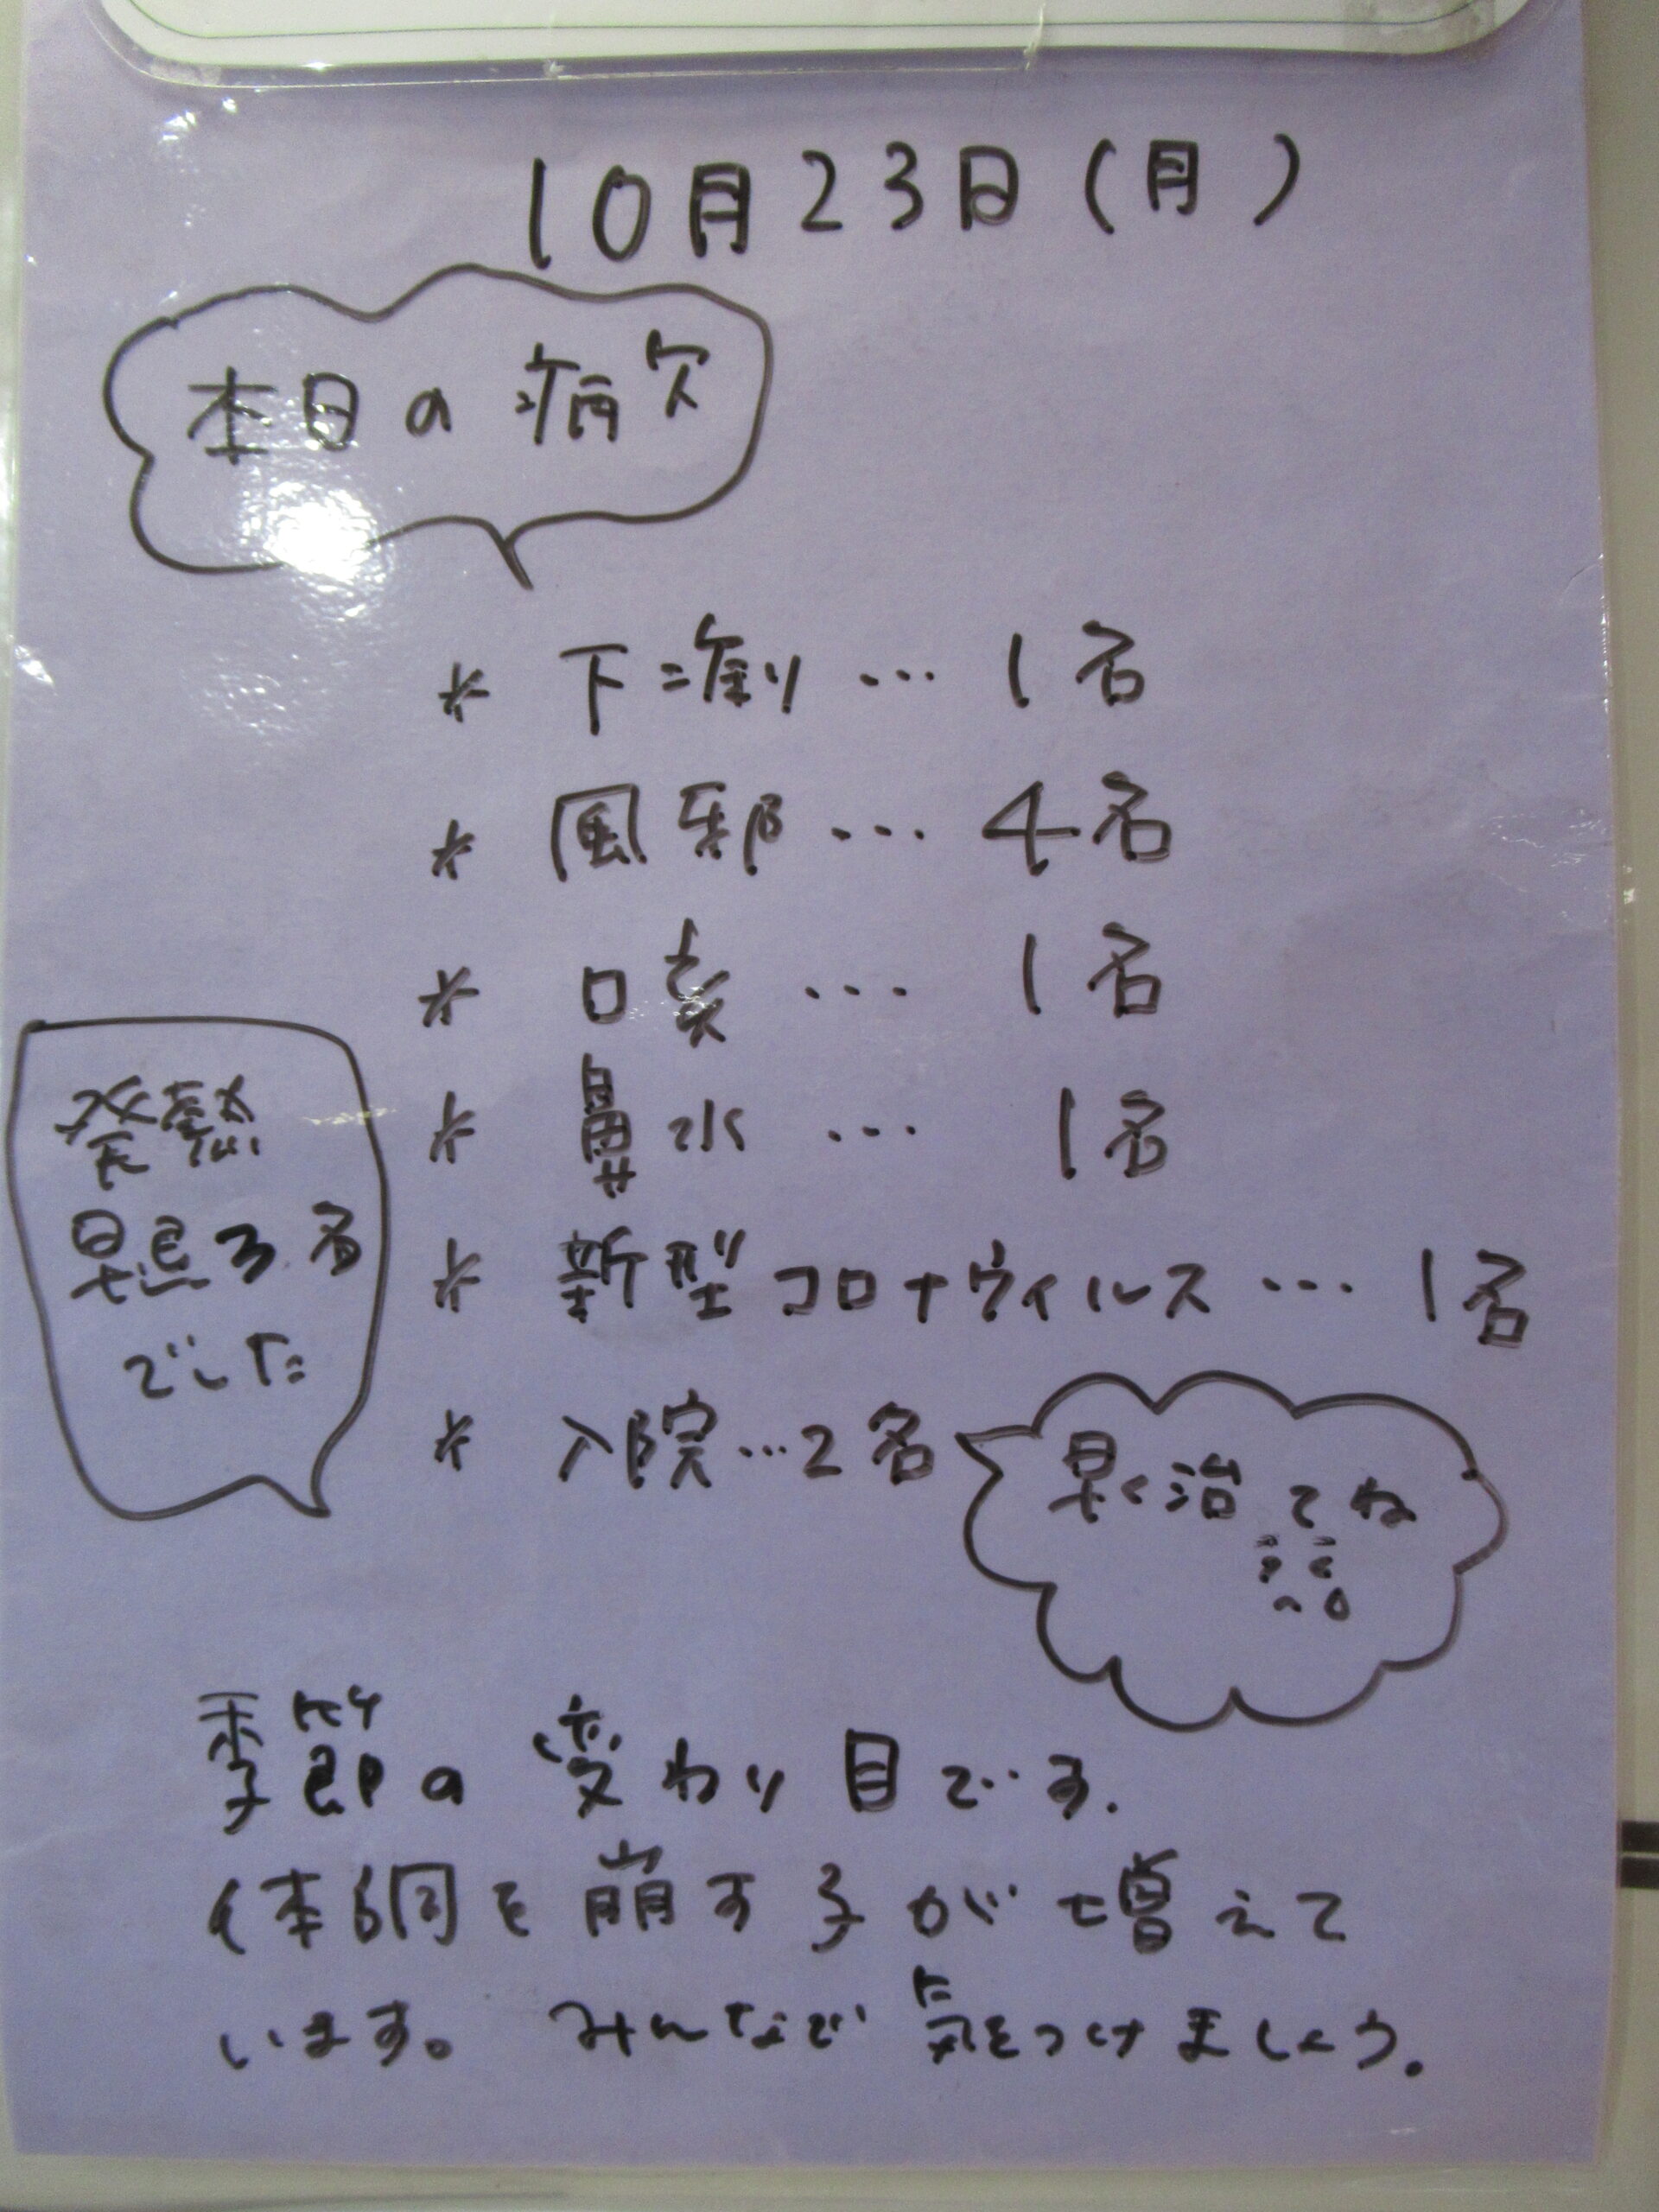 10月23日(月)
本日の病欠
* 下痢り … 1名
* 風邪 … 4名
* 咳 … 1名
* 鼻水 … 1名
* 新型コロナウィルス … 1名
* 入院 … 2名
発熱
早退3名
でした
早く治てね
季節の変わり目です.
体調を崩す子が増えて
います。 みんなで気をつけましょう.